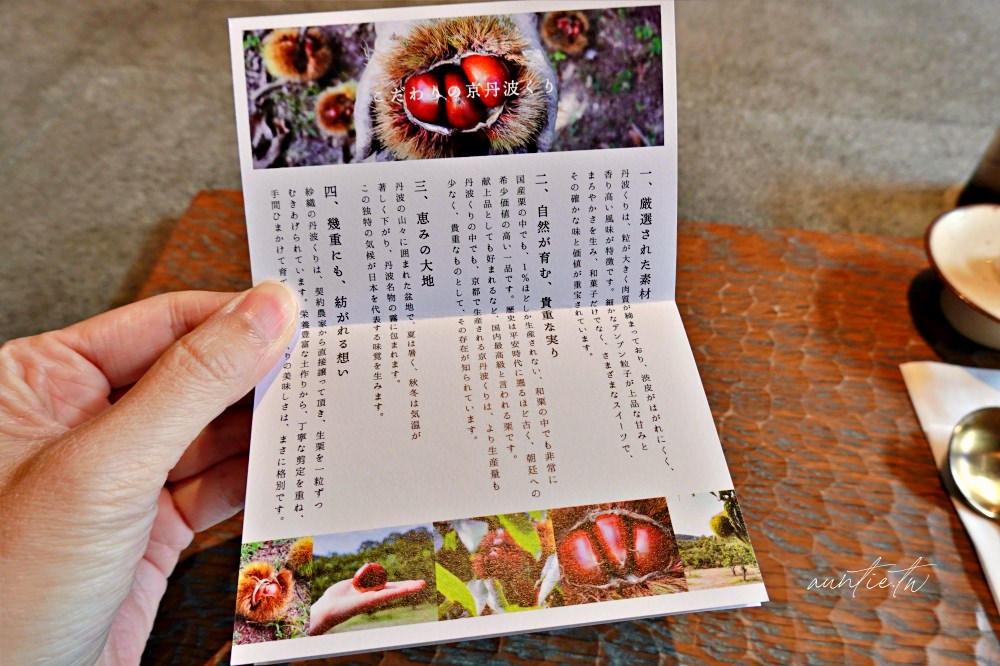 こだわりの京丹波くり
一、厳選された素材
丹波くりは、粒が大きく肉質が締まっており、渋皮がはがれにくく、
香り高い風味が特徴です。細かなアンプン粒子が上品な甘みと
まろやかさを生み、和菓子だけでなく、さまざまなスイーツで、
その確かな味と価値が重宝されています。
二、自然が育む、貴重な実り
国産栗の中でも、1%ほどしか生産されない、和栗の中でも非常に
希少価値の高い一品です。歴史は平安時代に遡るほど古く、朝廷への
献上品としても好まれるなど、国内最高級と言われる栗です。
丹波くりの中でも、京都で生産される京丹波くりは、より生産量も
少なく、貴重なものとして、その存在が知られています。
三、恵みの大地
丹波の山々に囲まれた盆地で、夏は暑く、秋冬は気温が
著しく下がり、丹波名物の霧に包まれます。
この独特の気候が日本を代表する味覚を生みます。
四、幾重にも、紡がれる想い
紗織の丹波くりは、契約農家から直接譲って頂き、生栗を一粒ずつ
むきあげられています。栄養豊富な土作りから、丁寧な剪定を重ね、
手間ひまかけて育て りの美味しさは、まさに格別です。
auntie.tw